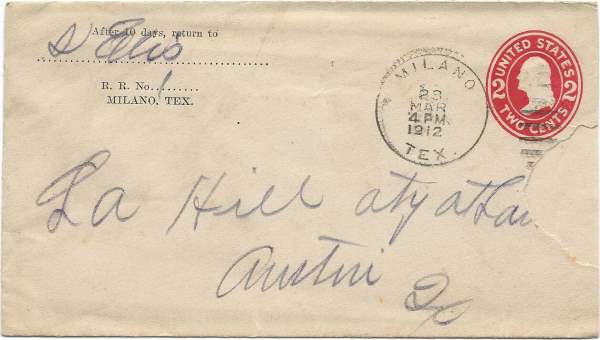 After 10 days, return to
S Ellis
R. R. No. 1
MILANO, TEX.
MILANO
23
MAR
4 PM
1912
TEX.
UNITED STATES
2 2
TWO CENTS
La Hill aty at Law
Austin Tx